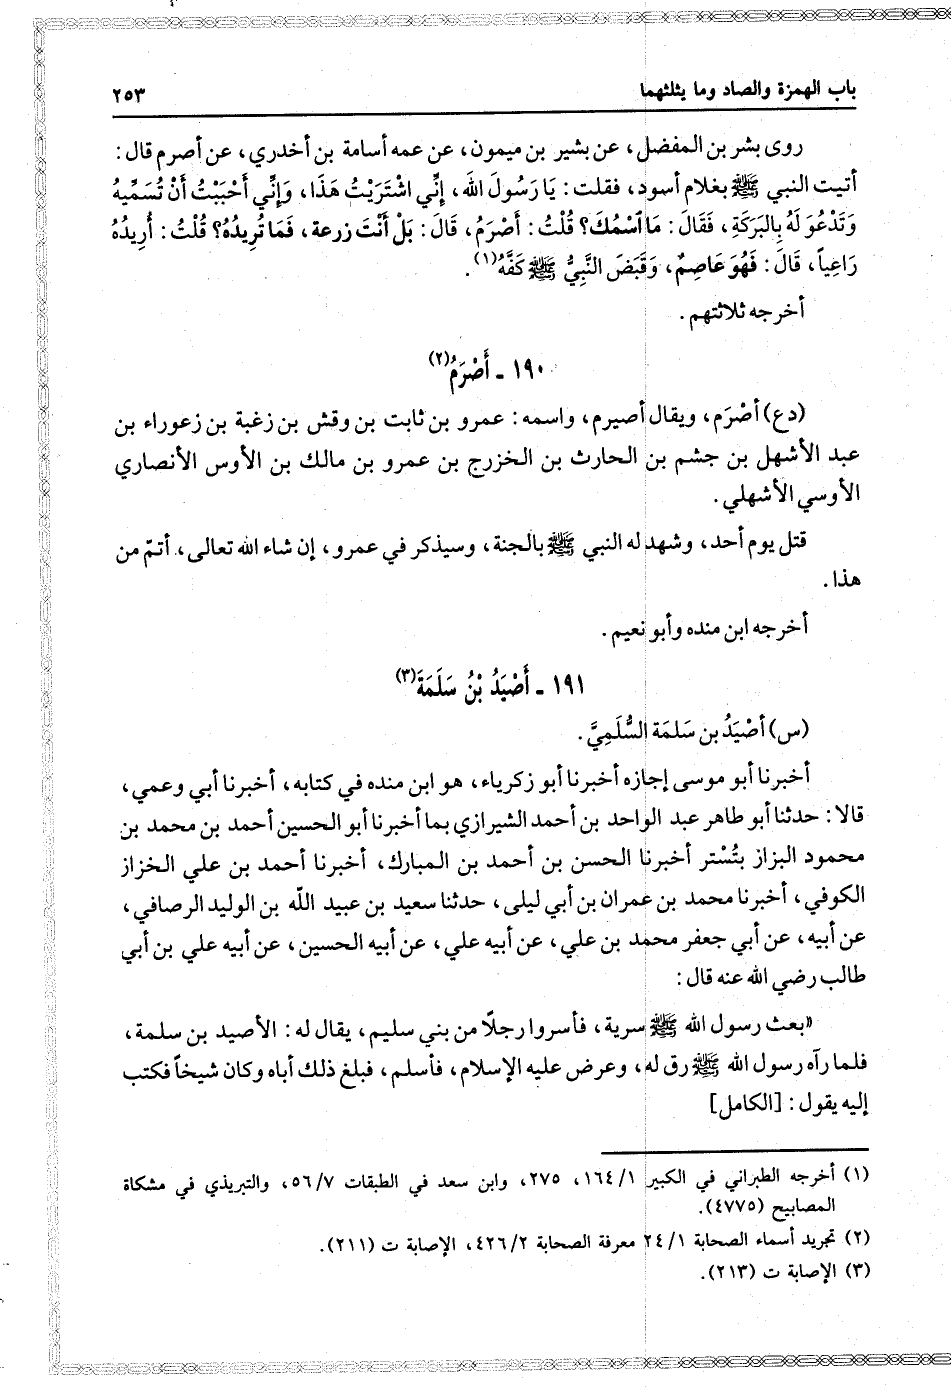 باب الهمزة والصاد وما يثلثهما ٢٥٣
روى بشر بن المفضل، عن بشير بن ميمون، عن عمه أسامة بن أخدري، عن أصرم قال:
أتيت النبي ﷺ بغلام أسود، فقلت: يَا رَسُولَ اللَّهِ، إِنِّي اشْتَرَيْتُ هَذَا، وَإِنِّي أَحْبَبْتُ أَنْ تُسَمِّيهُ
وَتَدْعُوَ لَهُ بِالبَرَكَةِ، فَقَالَ: مَا اسْمُكَ؟ قُلْتُ: أَصْرَمُ، قَالَ: بَلْ أَنْتَ زرعة، فَمَا تُرِيدُهُ؟ قُلْتُ: أُرِيدُهُ
رَاعِياً، قَالَ: فَهُوَ عَاصِمٌ، وَقَبَضَ النَّبِيُّ ﷺ كَفَّهُ(١).
أخرجه ثلاثتهم.
١٩٠ - أَصْرَمُ(٢)
(دع) أَصْرَم، ويقال أصيرم، واسمه: عمرو بن ثابت بن وقش بن زغبة بن زعوراء بن
عبد الأشهل بن جشم بن الحارث بن الخزرج بن عمرو بن مالك بن الأوس الأنصاري
الأوسي الأشهلي.
قتل يوم أحد، وشهد له النبي ﷺ بالجنة، وسيذكر في عمرو، إن شاء الله تعالى، أتمّ من
هذا.
أخرجه ابن منده وأبو نعيم.
١٩١ - أَصْيَدُ بْنُ سَلَمَةَ(٣)
(س) أَصْيَدُ بن سَلمَة السُّلَمِيَّ.
أخبرنا أبو موسى إجازه أخبرنا أبو زكرياء، هو ابن منده في كتابه، أخبرنا أبي وعمي،
قالا: حدثنا أبو طاهر عبد الواحد بن أحمد الشيرازي بما أخبرنا أبو الحسين أحمد بن محمد بن
محمود البزاز بتُسْتر أخبرنا الحسن بن أحمد بن المبارك، أخبرنا أحمد بن علي الخزاز
الكوفي، أخبرنا محمد بن عمران بن أبي ليلى، حدثنا سعيد بن عبيد اللّه بن الوليد الرصافي،
عن أبيه، عن أبي جعفر محمد بن علي، عن أبيه علي، عن أبيه الحسين، عن أبيه علي بن أبي
طالب رضي الله عنه قال:
«بعث رسول الله ﷺ سرية، فأسروا رجلاً من بني سليم، يقال له: الأصيد بن سلمة،
فلما رآه رسول الله ﷺ رق له، وعرض عليه الإسلام، فأسلم، فبلغ ذلك أباه وكان شيخاً فكتب
إليه يقول: [الكامل]
(١) أخرجه الطبراني في الكبير ١/ ١٦٤، ٢٧٥، وابن سعد في الطبقات ٧/ ٥٦، والتبريذي في مشكاة
المصابيح (٤٧٧٥).
(٢) تجريد أسماء الصحابة ١/ ٢٤ معرفة الصحابة ٢/ ٤٢٦، الإصابة ت (٢١١).
(٣) الإصابة ت (٢١٣).